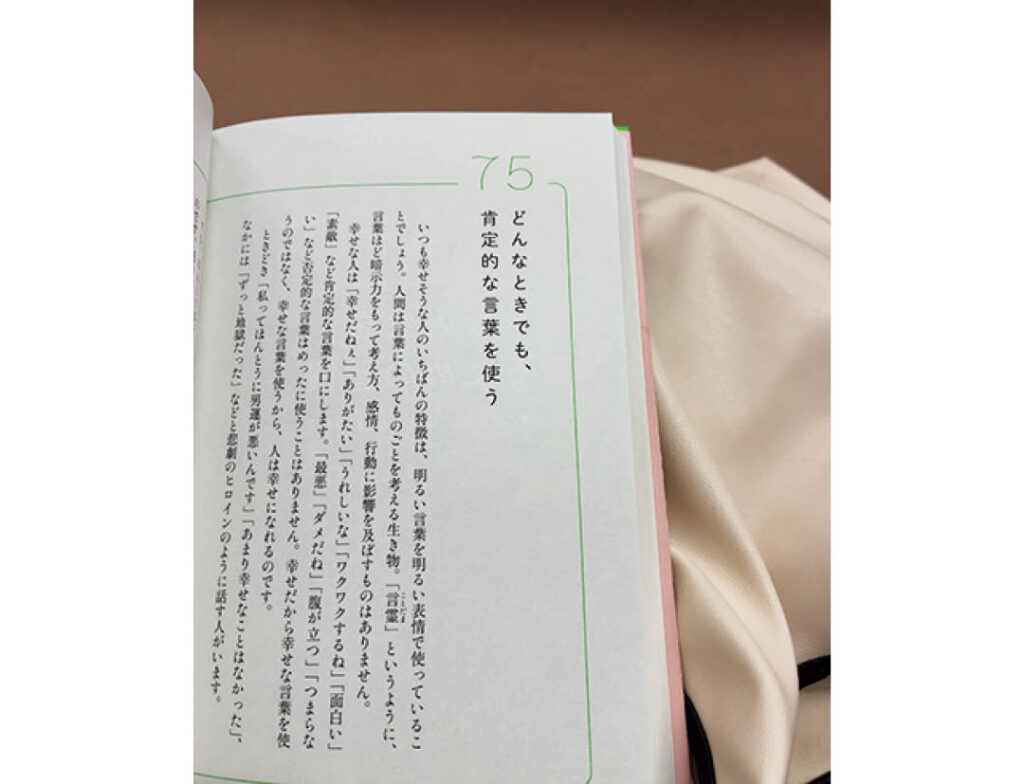 75
どんなときでも、
肯定的な言葉を使う
いつも幸せそうな人のいちばんの特徴は、明るい言葉を明るい表情で使っているこ
とでしょう。人間は言葉によってものごとを考える生き物。「言霊」というように、
言葉ほど暗示力をもって考え方、感情、行動に影響を及ぼすものはありません。
幸せな人は「幸せだねぇ」「ありがたい」「うれしいな」「ワクワクするね」「面白い」
「素敵」など肯定的な言葉を口にします。「最悪」「ダメだね」「腹が立つ」「つまらな
い」など否定的な言葉はめったに使うことはありません。幸せだから幸せな言葉を使
うのではなく、幸せな言葉を使うから、人は幸せになれるのです。
ときどき「私ってほんとうに男運が悪いんです」「あまり幸せなことはなかった」、
なかには「ずっと地獄だった」などと悲劇のヒロインのように話す人がいます。